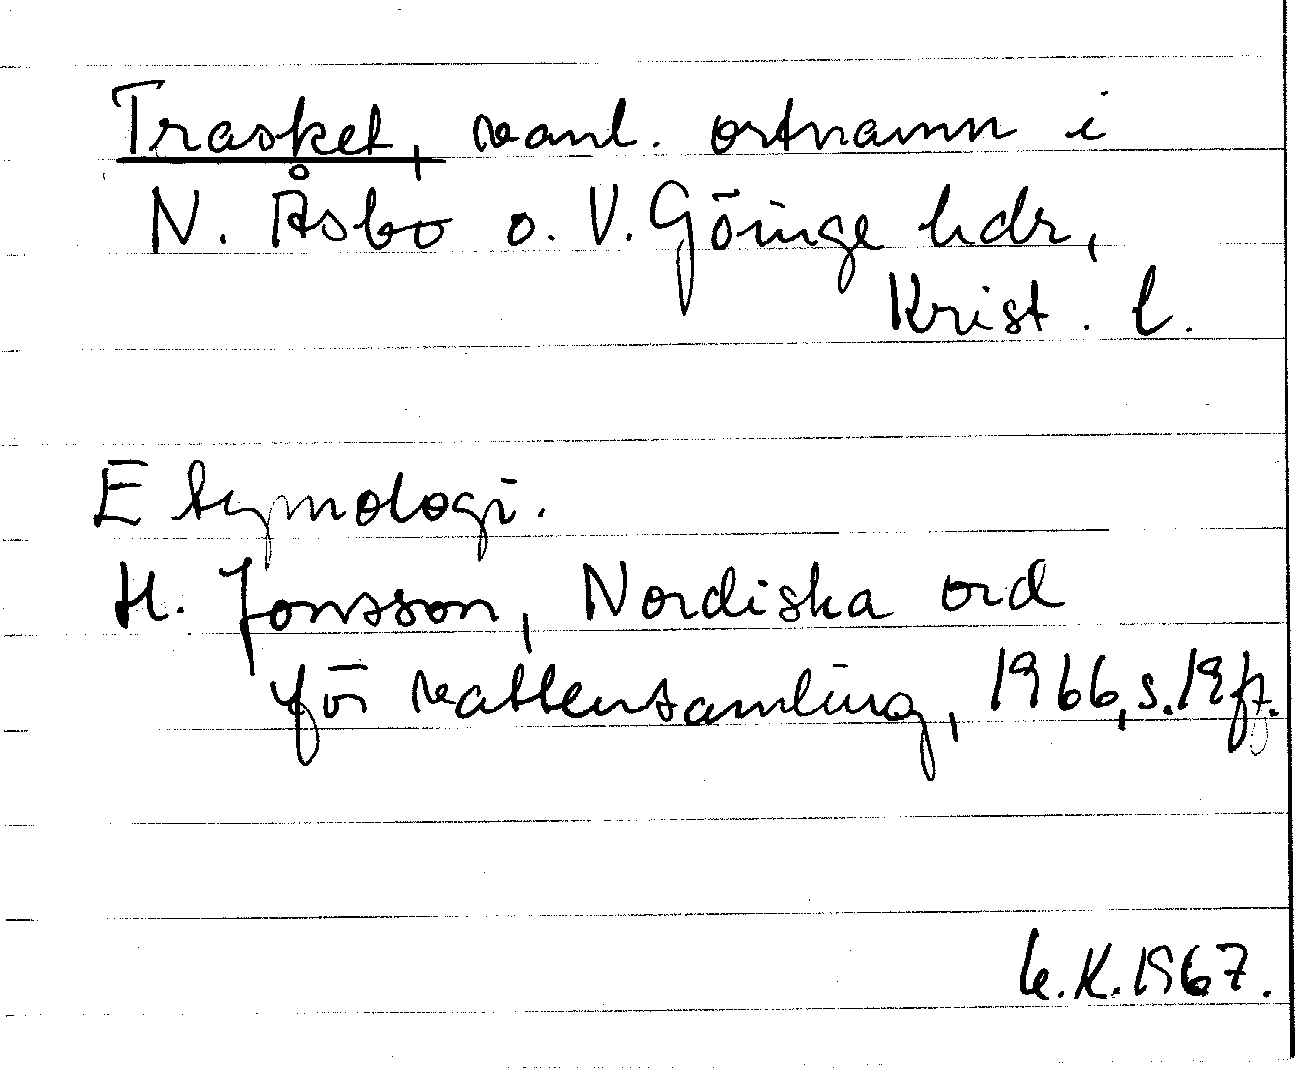 Trasket, vanl. ortnamn i
N. Åsbo o. V. Göinge hdr,
Krist. l.
Etymologi.
H. Jonsson, Nordiska ord
för vattensamling, 1966, s. 19 f.
K. 1967.